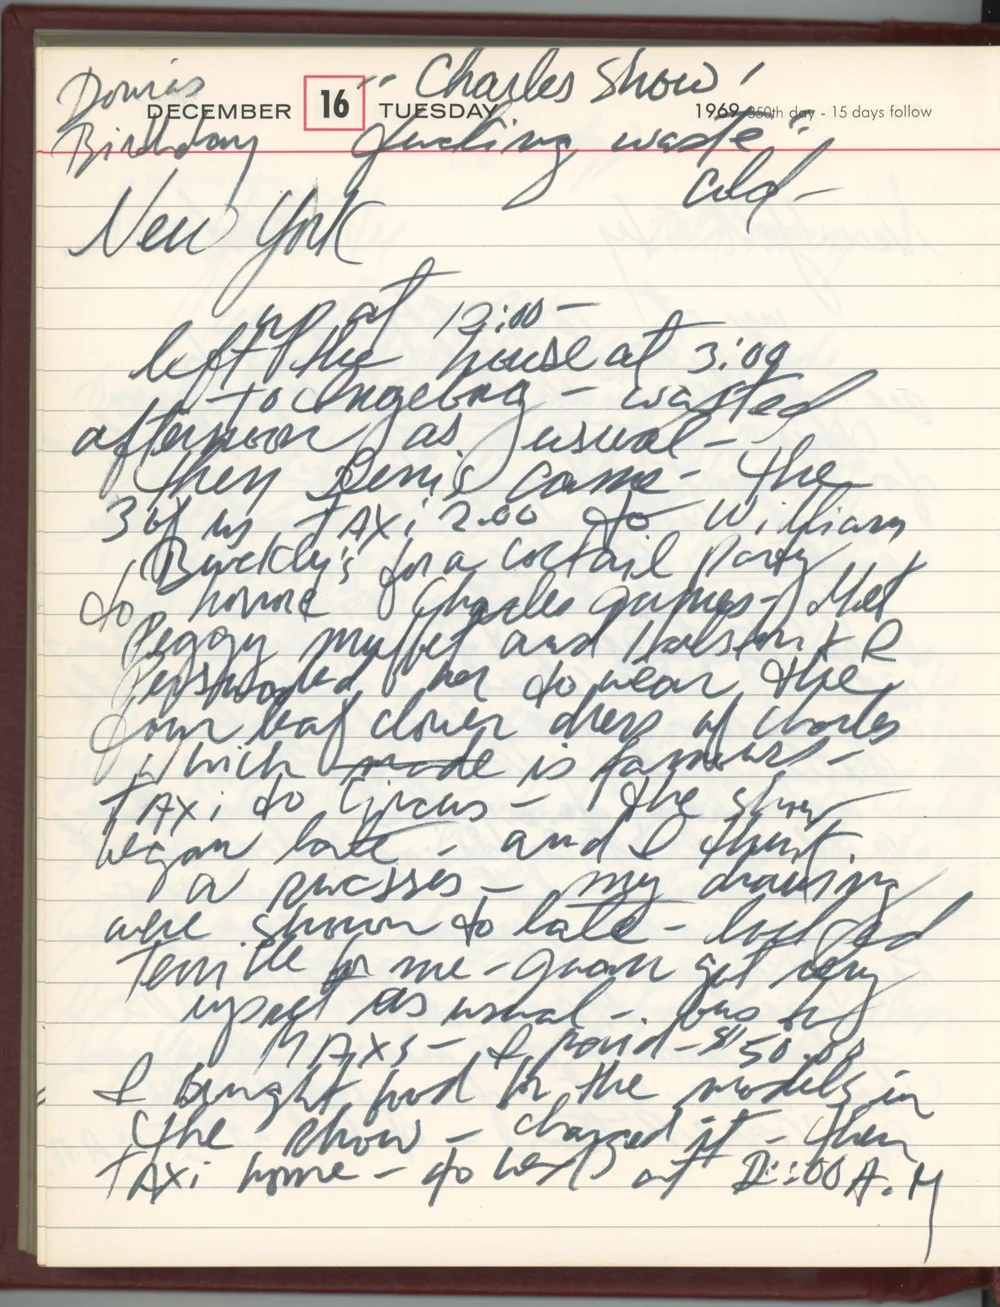 "Charles Show"
Donias
DECEMBER 16 TUESDAY 1969 350th day - 15 days follow
Birthday fucking waste"
cold -
New York
up at 12:00 -
left the house at 3:00
to - wasted
afternoon as usual -
then came - the
3 of us TAXi 2.00 to William
Buckley's for a coctail party
to honor Charles James - Met
Peggy Moffet and &
her to wear the
four leaf clover dress of Charles
which made is famous -
TAXi to Circus - the show
began late - and I thout
a - my drawing
were shown to late - looked
terrible for me - Juan got very
upset as usual - to
MAXs - I paid - $50.00
I bought food for the models in
the show - charged it - then
TAXi home - to bed at 2:00 A.M